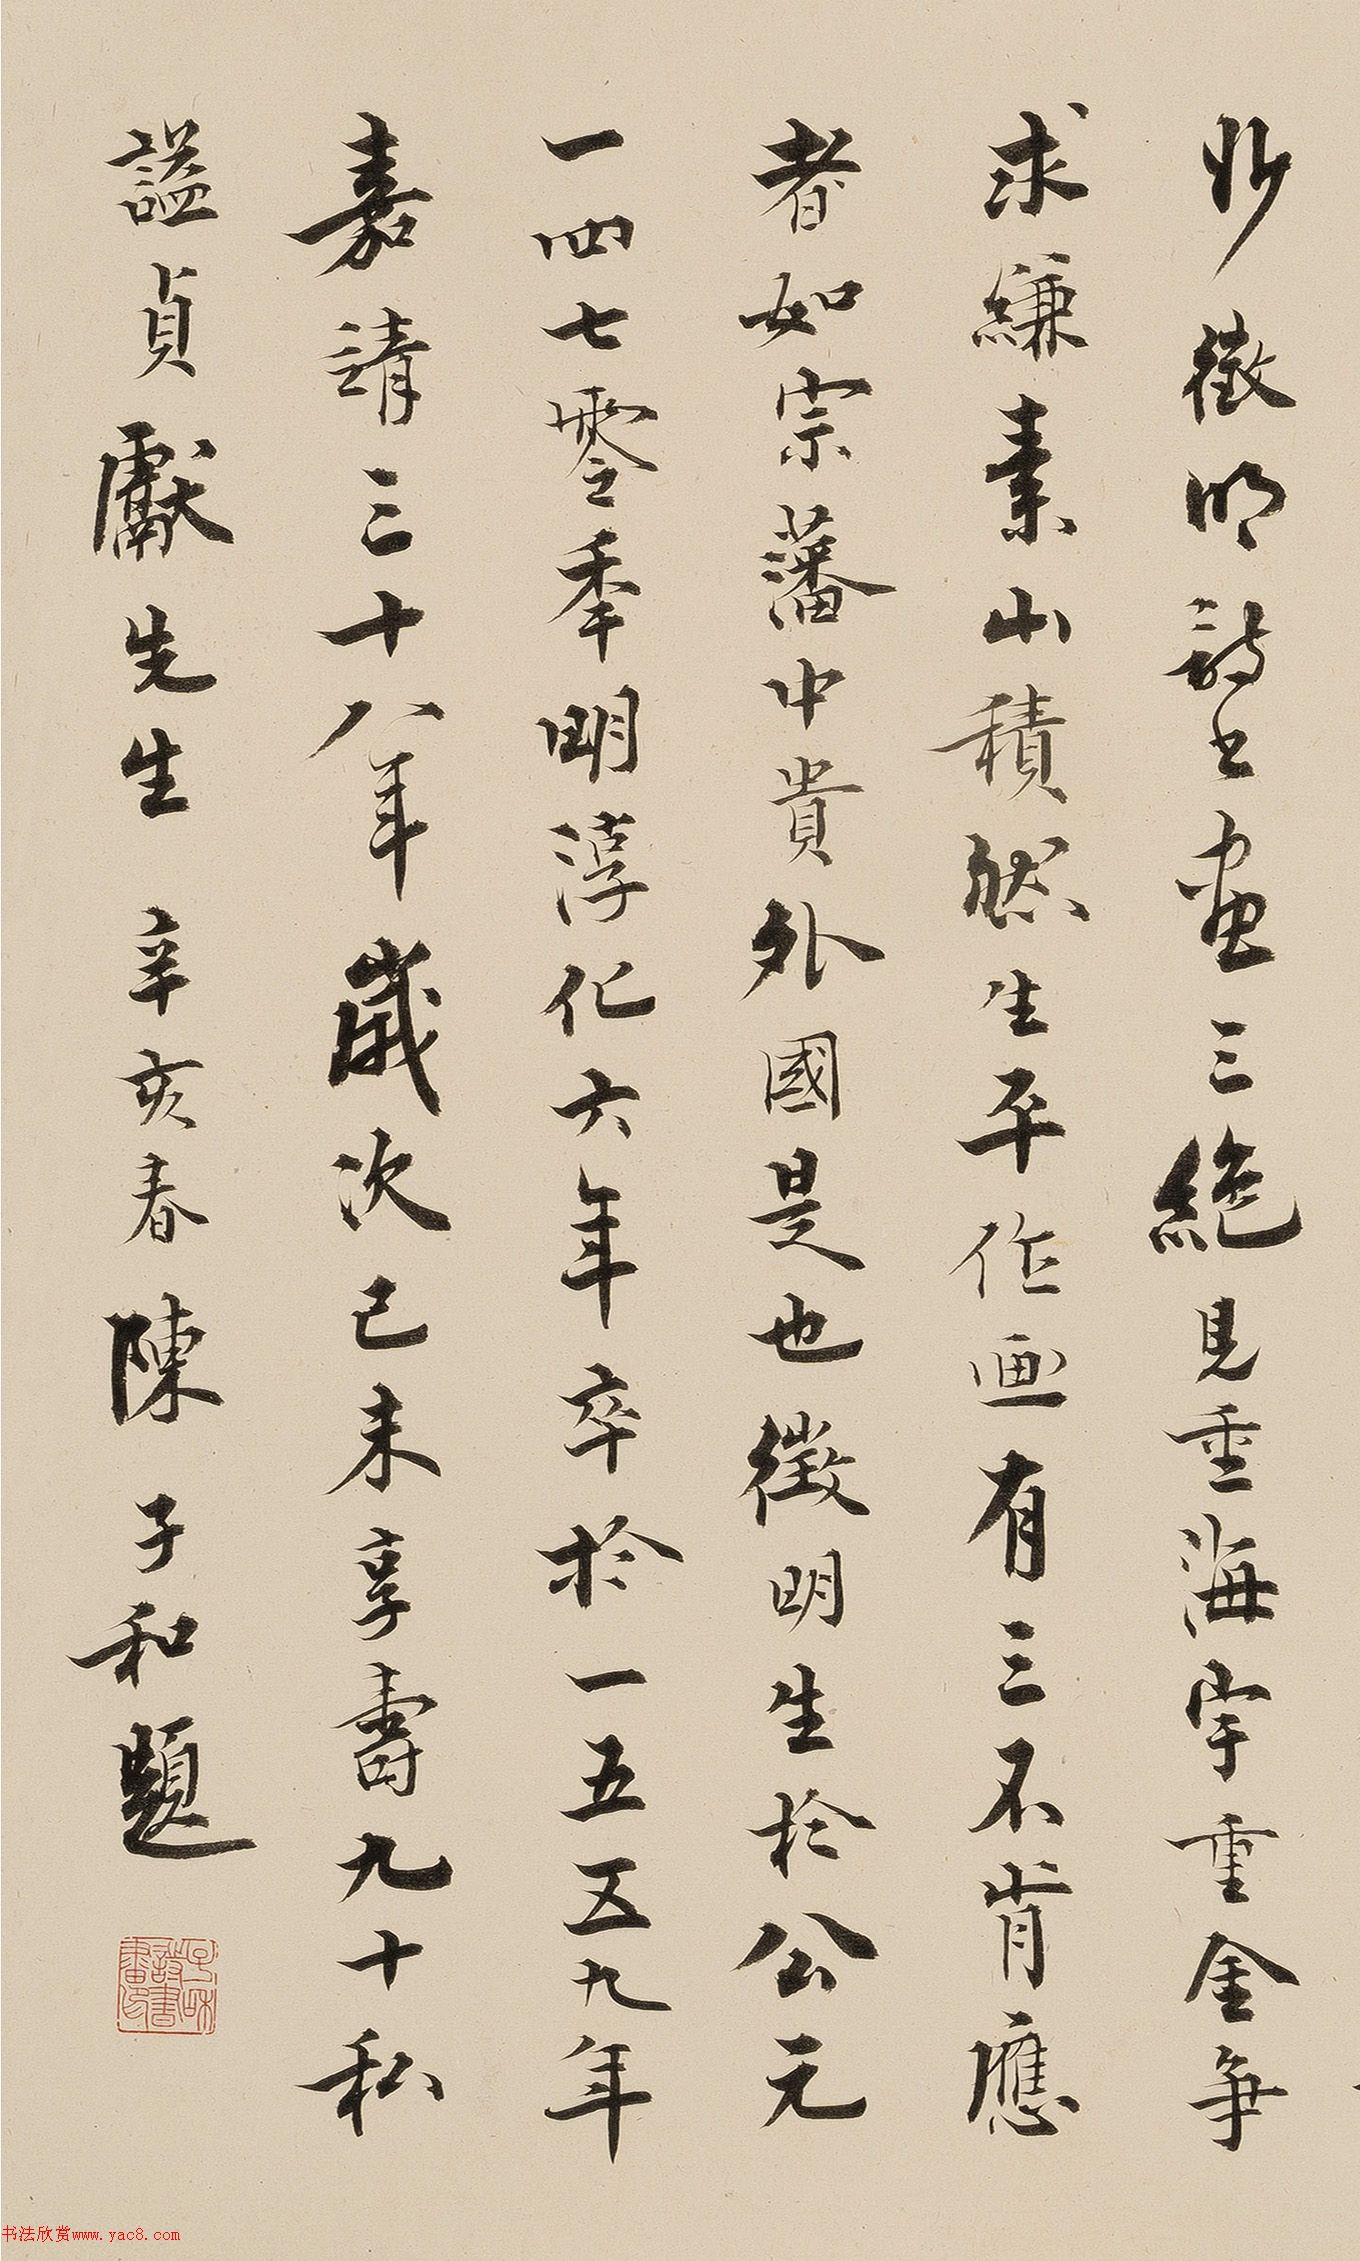 妙徵明詩書畫三絕見重海宇重金爭
求縑素山積然生平作画有三不肯應
者如宗藩中貴外國是也徵明生於公元
一四七零季明淳化六年卒於一五五九年
嘉請三十八年歲次己未享壽九十私
謚貞獻先生 辛亥春 陳子和題
子和詩書畫印
书法欣赏www.yac8.com